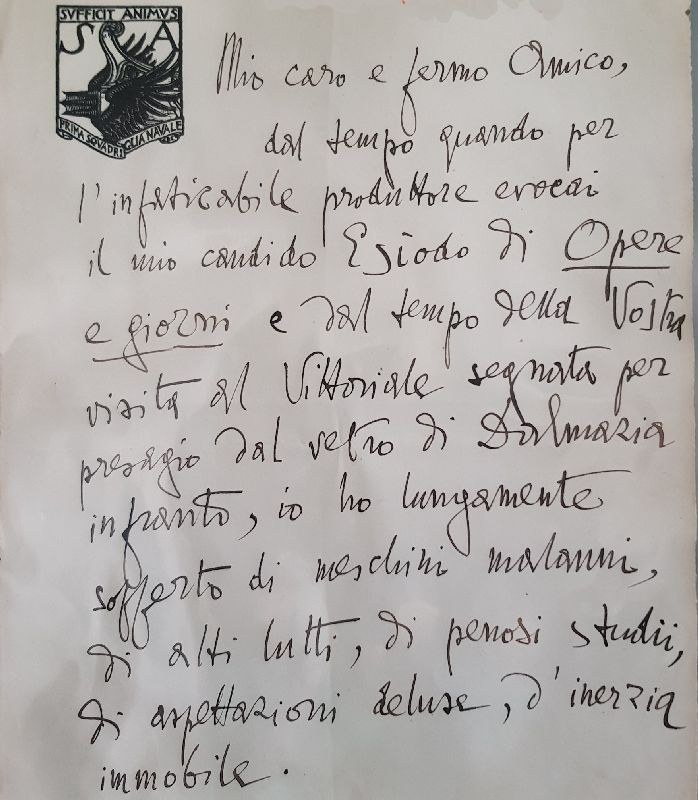 SVFFICIT ANIMVS
S A
PRIMA SQVADRIGLIA NAVALE
Mio caro e fermo Amico,
dal tempo quando per
l'infaticabile produttore evocai
il mio candido Esiodo di Opere
e giorni e dal tempo della Vostra
visita al Vittoriale segnata per
presagio dal vetro di Dalmazia
infranto, io ho lungamente
sofferto di meschini malanni,
di alti lutti, di penosi studii,
di aspettazioni deluse, d'inerzia
immobile.